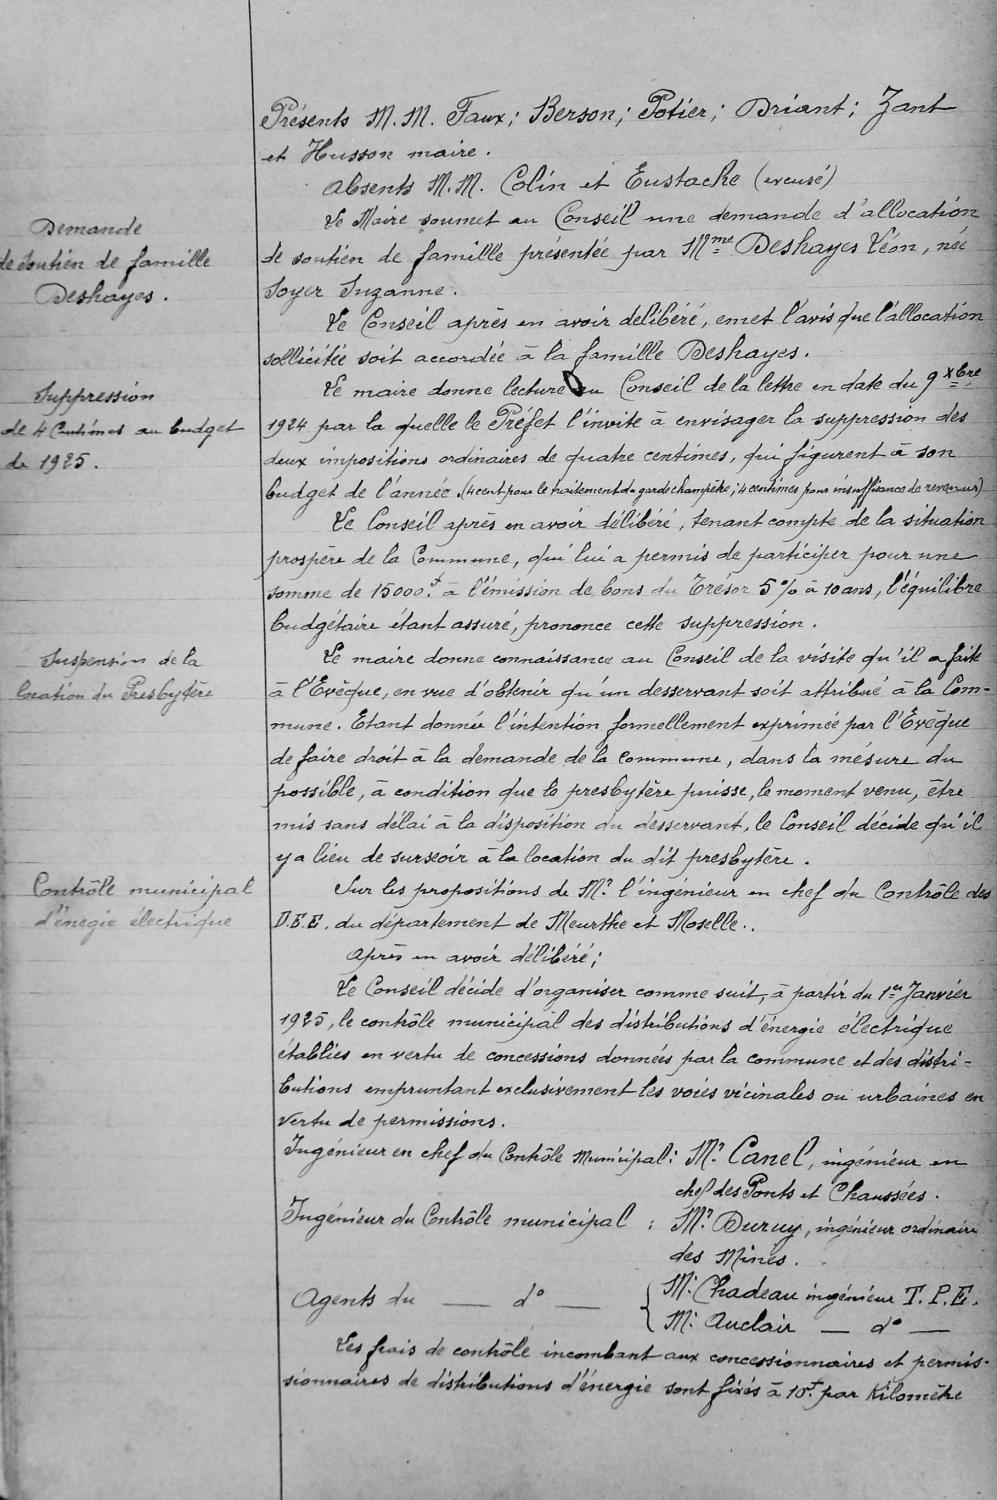 Présents M.M. Faux; Berson; Potier; Driant; Zant
et Husson maire.
Absents M.M. Colin et Eustache (excusé)
Demande
de soutien de famille
Deshayes.
Le Maire soumet au Conseil une demande d'allocation
de soutien de famille présentée par Mme Deshayes Léon, née
Soyer Suzanne.
Le Conseil après en avoir delibéré, emet l'avis que l'allocation
sollicitée soit accordée à la famille Deshayes.
Suppression
de 4 Centimes au budget
de 1925.
Le maire donne lecture au Conseil de la lettre en date du 9 Xbre
1924 par la quelle le Préfet l'invite à envisager la suppression des
deux impositions ordinaires de quatre centimes, qui figurent à son
budget de l'année. (4 cent pour le traitement du garde champêtre; 4 centimes pour insuffisance de revenus)
Le Conseil après en avoir délibéré, tenant compte de la situation
prospère de la Commune, qui lui a permis de participer pour une
somme de 15000f. à l'émission de bons du Trésor 5% à 10 ans, l'équilibre
budgétaire étant assuré, prononce cette suppression.
Suspension de la
location du Presbytère
Le maire donne connaissance au Conseil de la visite qu'il a faite
à l'Evêque, en vue d'obtenir qu'un desservant soit attribué à la Com-
mune. Etant donnée l'intention formellement exprimée par l'Evêque
de faire droit à la demande de la commune, dans la mésure du
possible, à condition que le presbytère puisse, le moment venu, être
mis sans délai à la disposition du desservant, le Conseil décide qu'il
y a lieu de surseoir à la location du dit presbytère.
Contrôle municipal
d'énegie électrique
Sur les propositions de Mr l'ingénieur en chef du Contrôle des
D.E.E. du département de Meurthe et Moselle..
Après en avoir délibéré;
Le Conseil décide d'organiser comme suit, à partir du 1er Janvier
1925, le contrôle municipal des distributions d'énergie électrique
établies en vertu de concessions données par la commune et des distri-
butions empruntant exclusivement les voies vicinales ou urbaines en
vertu de permissions.
Ingénieur en chef du Contrôle Municipal: Mr. Canel, ingénieur en
chef des Ponts et Chaussées.
Ingénieur du Contrôle municipal : Mr. Duruy, ingénieur ordinaire
des Mines.
Agents du — do — { M. Chadeau ingénieur T.P.E.
M. Auclair — do —
Les frais de contrôle incombant aux concessionnaires et permis-
sionnaires de distributions d'énergie sont fixés à 10f. par Kilomètre